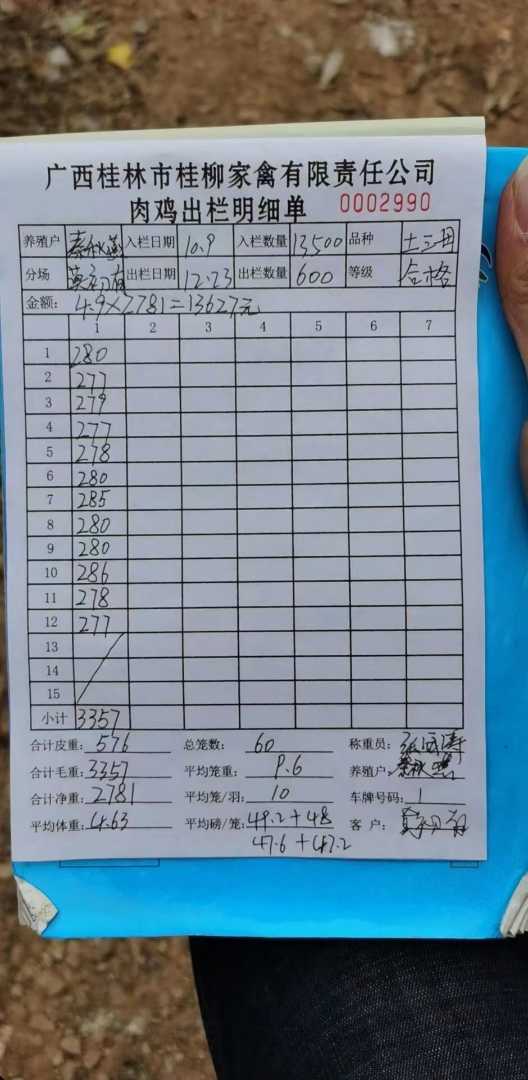 广西桂林市桂柳家禽有限责任公司
肉鸡出栏明细单 0002990
养殖户 秦秋燕 入栏日期 10.9 入栏数量 13500 品种 土三田
分场 出栏日期 12.23 出栏数量 600 等级 合格
金额: 4.9×2781=13627元
1 2 3 4 5 6 7
1 280
2 277
3 279
4 277
5 278
6 280
7 285
8 280
9 280
10 286
11 278
12 277
13
14
15
小计 3357
合计皮重: 576 总笼数: 60 称重员:
合计毛重: 3357 平均笼重: 9.6 养殖户:
合计净重: 2781 平均笼/羽: 10 车牌号码: 1
平均体重: 4.63 平均磅/笼: 48.2+48 客 户:
47.6+47.2